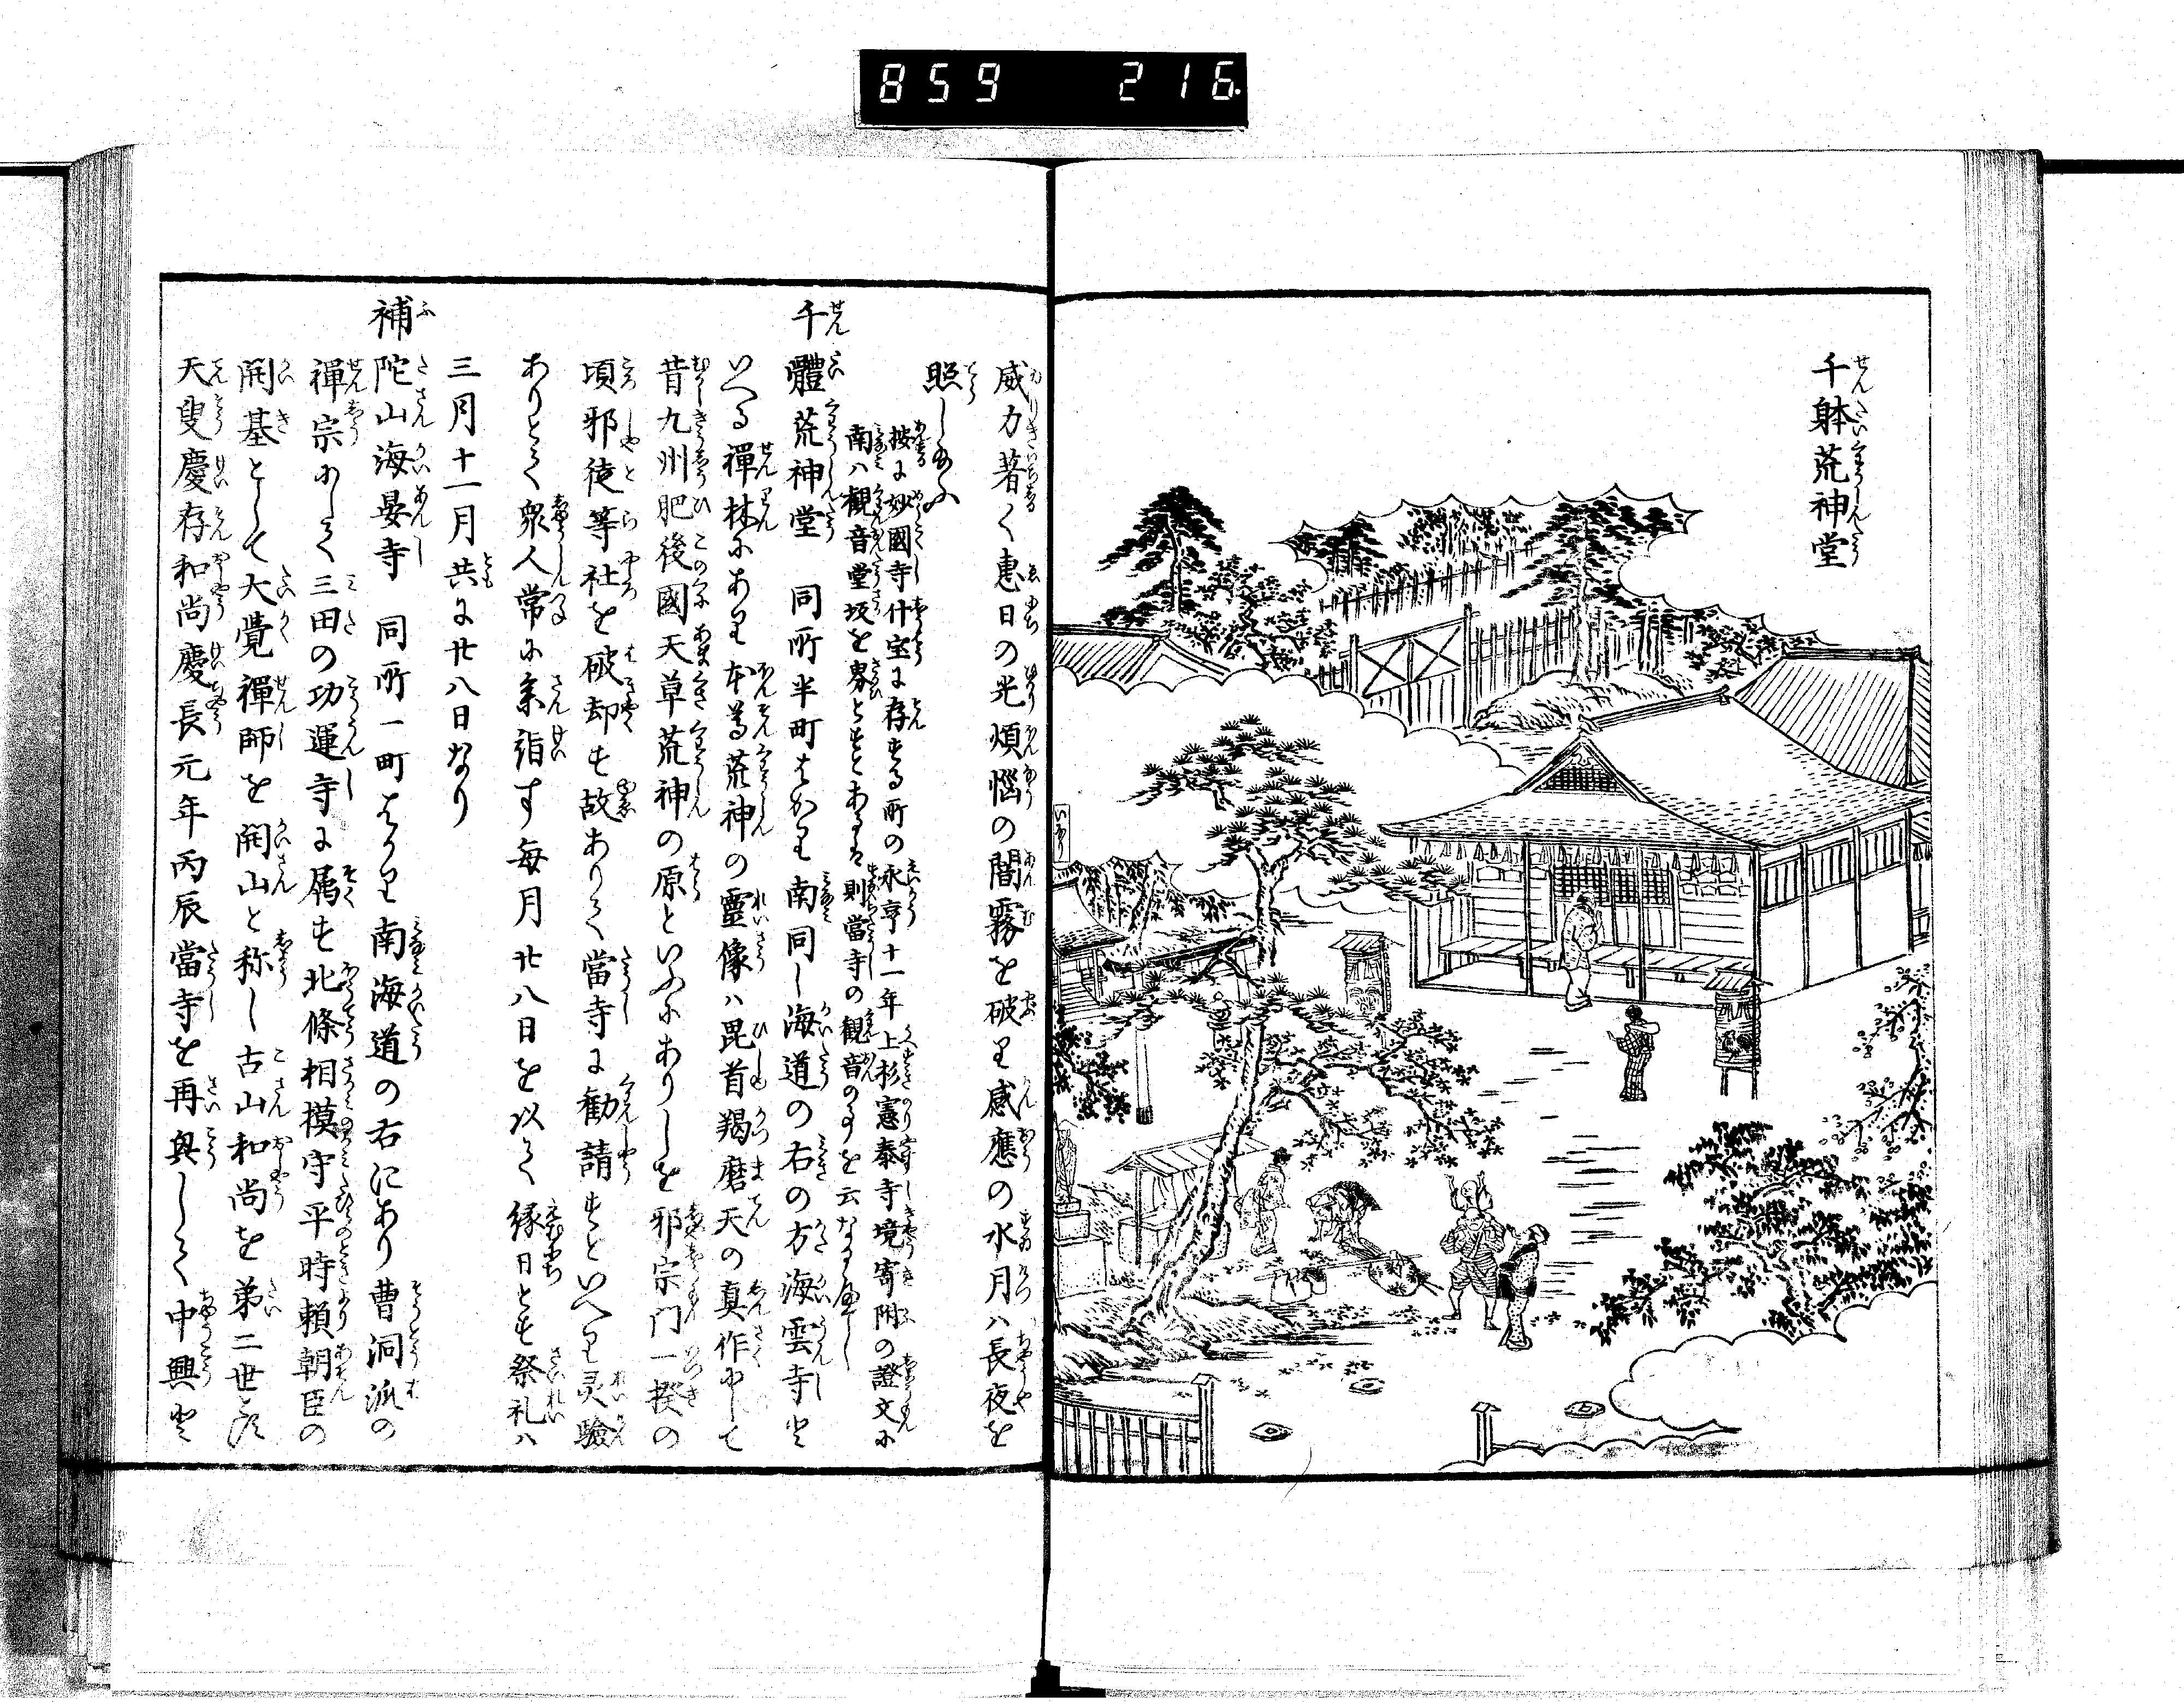 859 216
千躰荒神堂
いなり
威力著く惠日の光煩惱の闇霧を破り感應の水月ハ長夜を
照し給ふ
按に妙國寺什宝に存する所の永享十一年上杉憲泰寺境寄附の證文に
南ハ観音堂坂を界とすとあるは則當寺の観音の事を云なるべし
千體荒神堂　同所半町ばかり南同し海道の右の方海雲寺と
いへる禪林にあり本尊荒神の靈像ハ毘首羯磨天の真作にして
昔九州肥後國天草荒神の原といふにありしを邪宗门一揆の
頃邪徒等社を破却す故ありて當寺に勧請すといへり灵驗
ありとて衆人常に参詣す毎月廿八日を以て縁日とす祭礼ハ
三月十一月共に廿八日なり
補陀山海晏寺　同所一町ばかり南海道の右にあり曹洞派の
禪宗にして三田の功運寺に属す北條相摸守平時頼朝臣の
開基として大覺禪師を開山と称し古山和尚を弟二世とす
天叟慶存和尚慶長元年丙辰當寺を再興して中興と